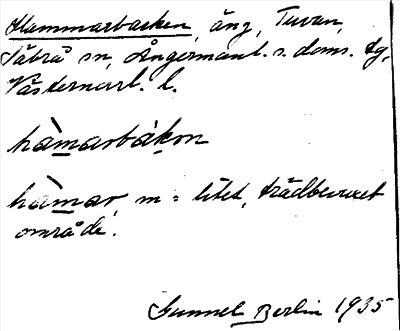 Hammarbacken, äng, Tuvan,
Säbrå sn, Ångermanl. s. doms. tg,
Västernorrl. l.
hàmarbákon
hàmar, m = litet, trädbevuxet
område.
Gunnel Berlin 1935